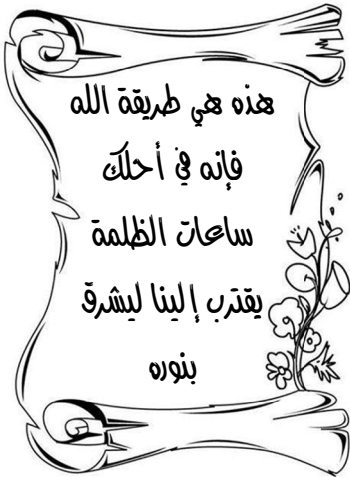 هذه هي طريقة الله
فإنه في أحلك
ساعات الظلمة
يقترب إلينا ليشرق
بنوره